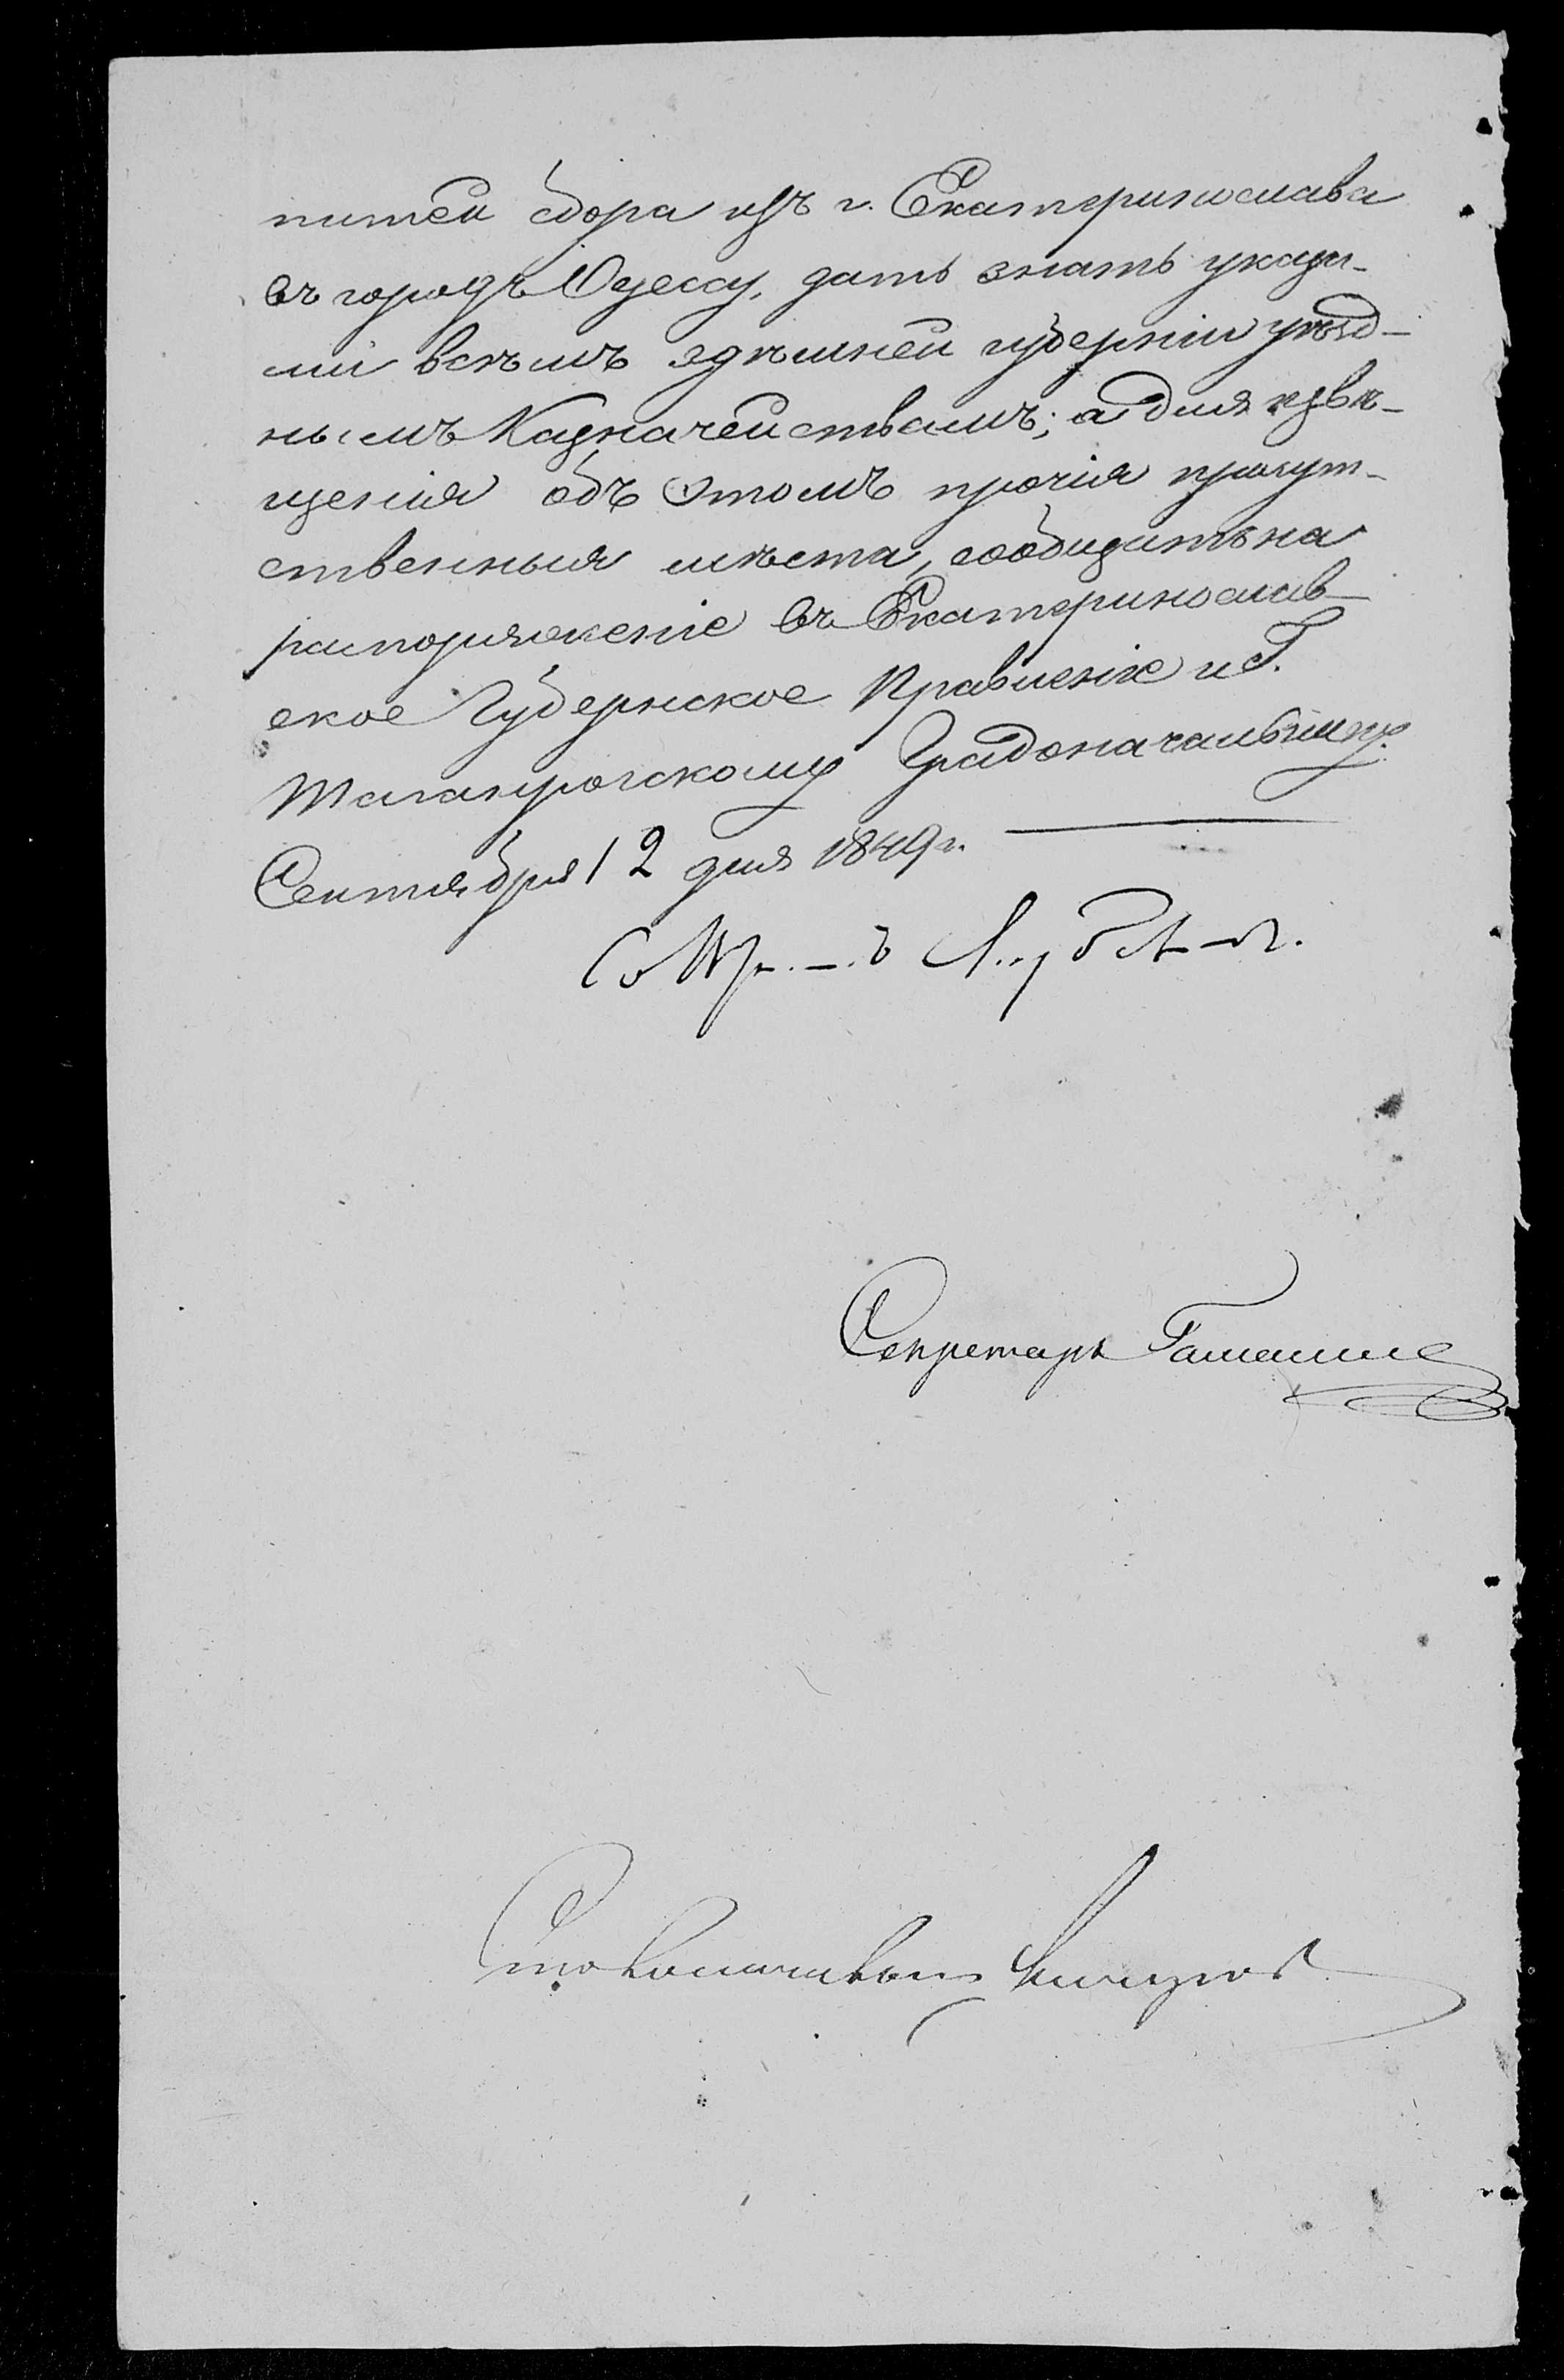 питей сбора изъ г. Екатеринослава
въ городъ Одессу, дать знать указа-
ми всѣмъ здѣшней губерніи уѣзд-
нымъ Казначействамъ; а для извѣ-
щенія объ этомъ прочія присут-
ственныя мѣста, сообщить на
распоряженіе въ Екатеринослав-
ское Губернское Правленіе и Г.
Таганрогскому Градоначальнику.
Сентября 12 дня 1849 г.
Секретарь
Столоначальникъ